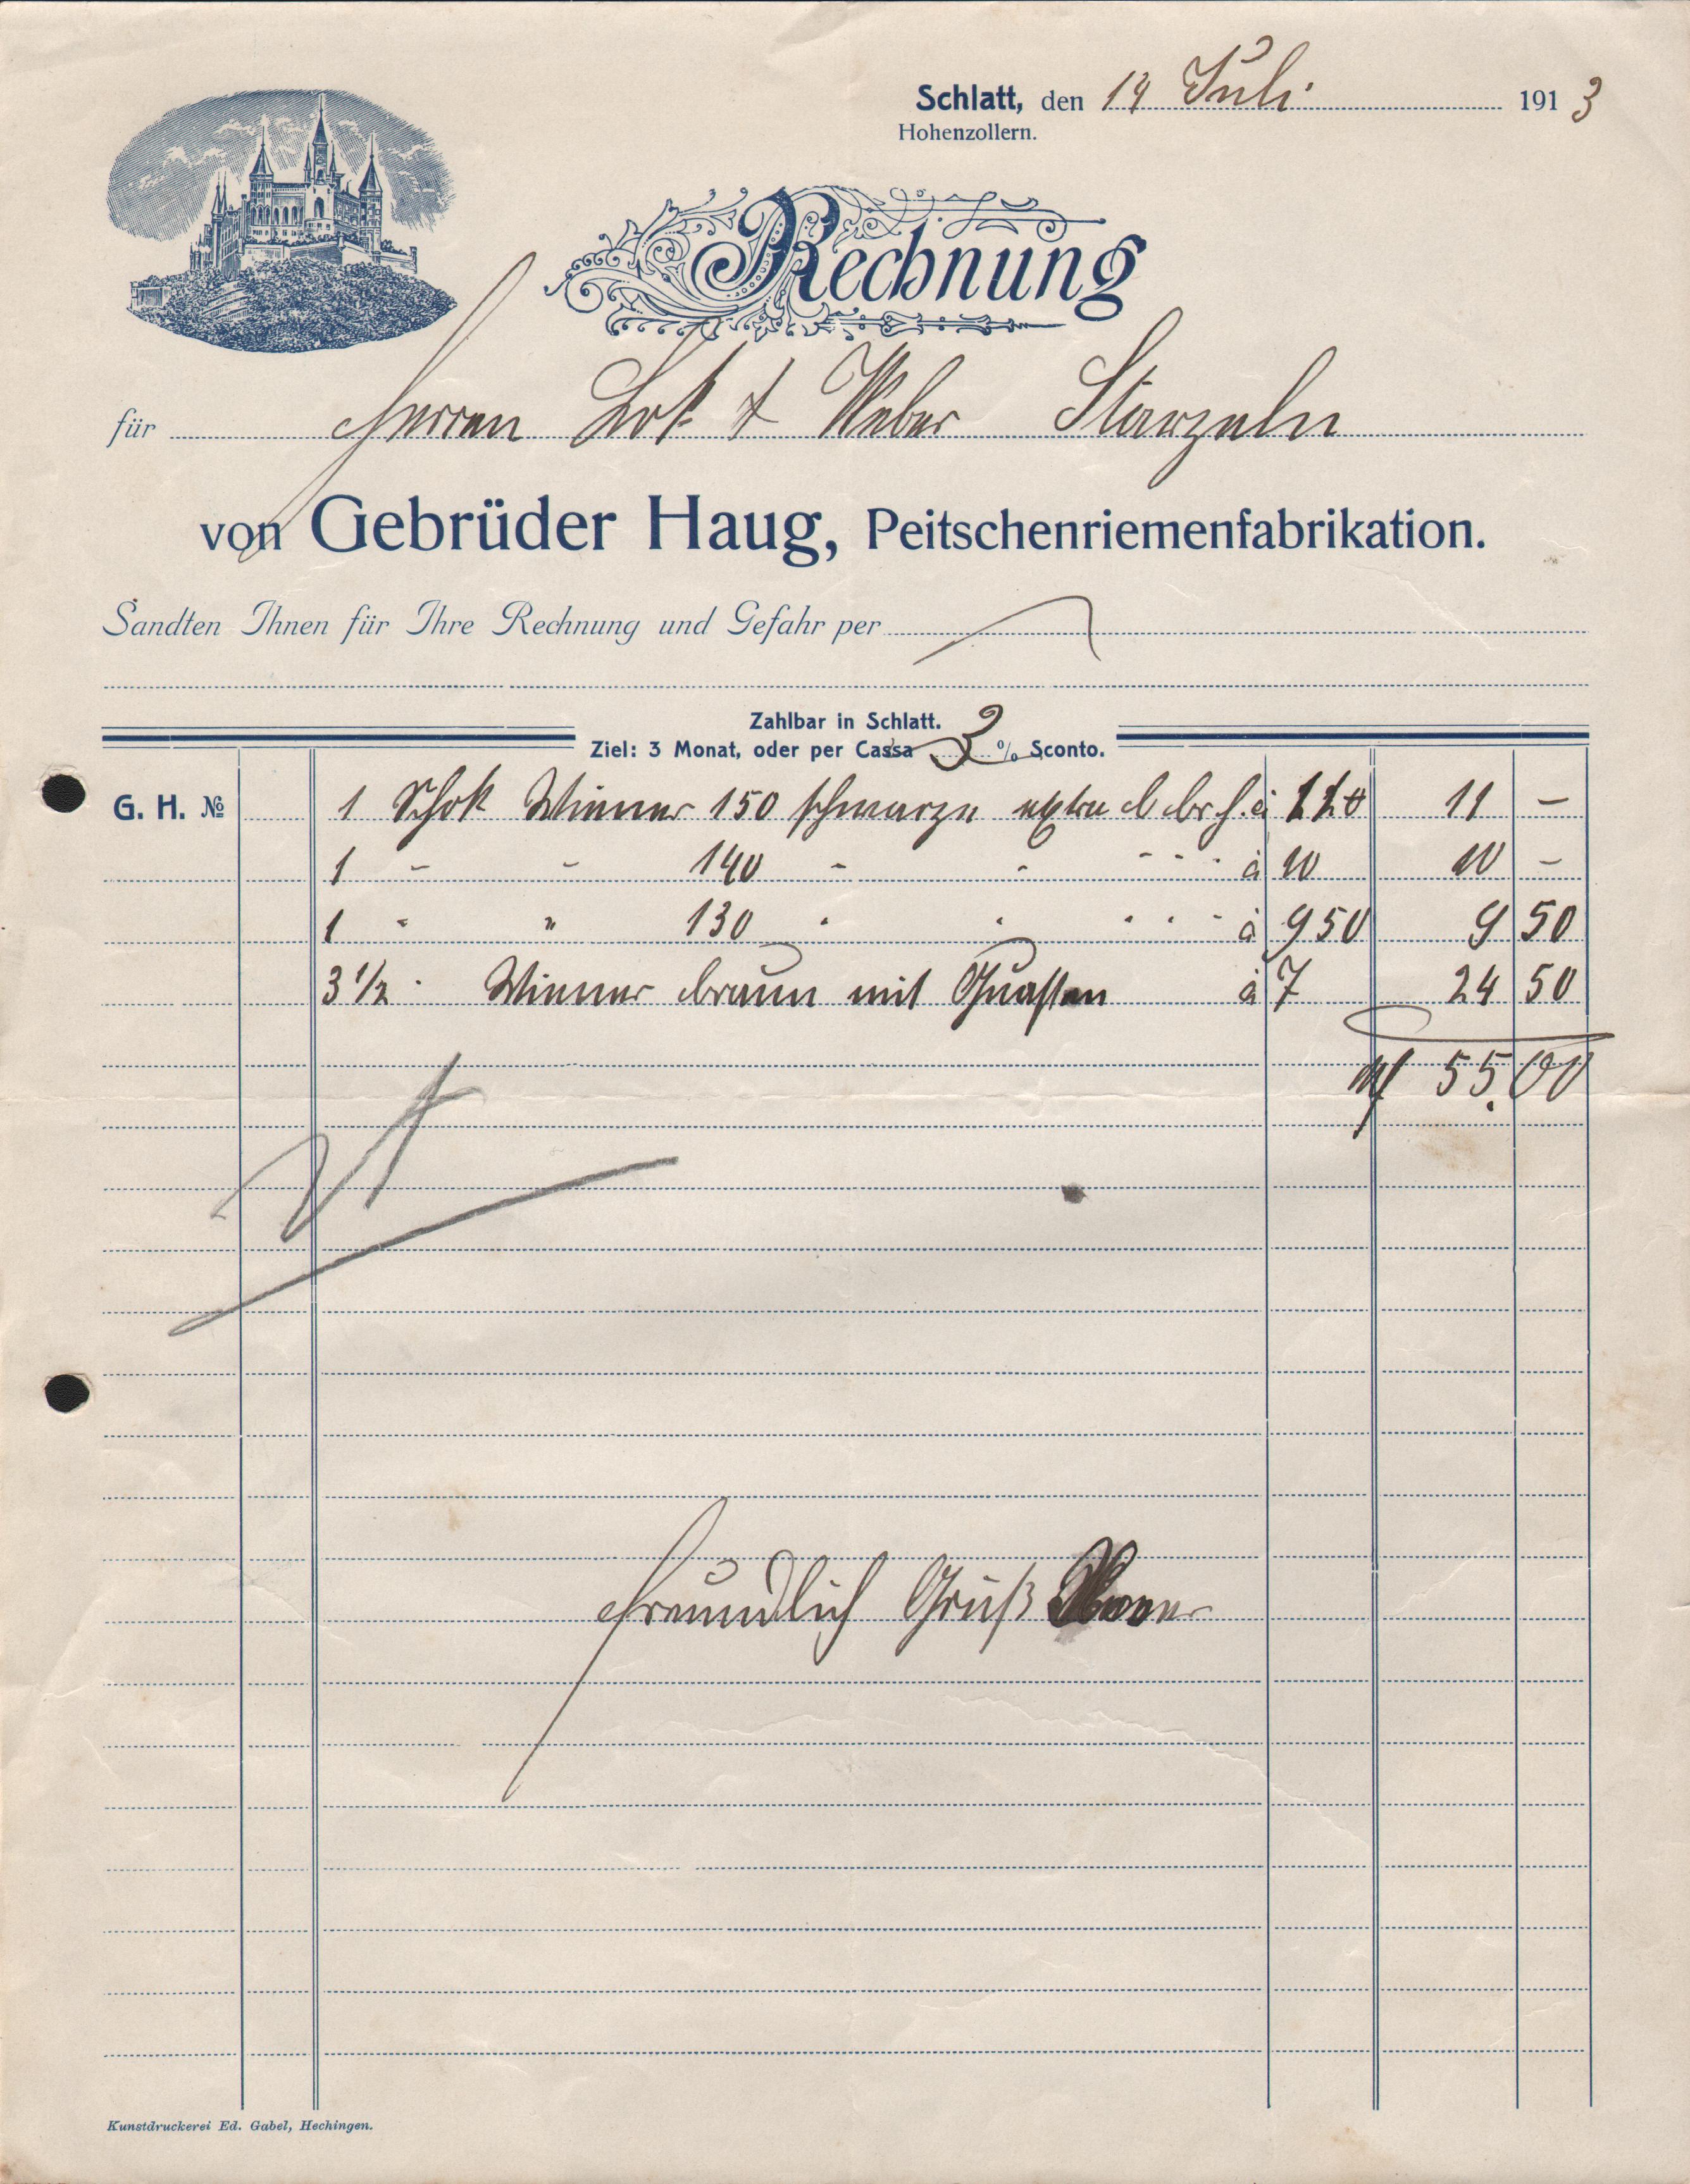 Schlatt, den 14 Juli 1913
Hohenzollern.
Rechnung
für Herren Lok & Weber Starzeln
von Gebrüder Haug, Peitschenriemenfabrikation.
Sandten Ihnen für Ihre Rechnung und Gefahr per
Zahlbar in Schlatt.
Ziel: 3 Monat, oder per Cassa 3 % Sconto.
G. H. № 1 Schok Wiener 150 schwarze extra b br h. à 11 11 –
1 " " 140 " " " " " à 10 10 –
1 " " 130 " " " " " à 9 50 9 50
3 1/2 " Wiener braun mit Quasten à 7 24 50
M 55.00
Freundlich Gruß
Kunstdruckerei Ed. Gabel, Hechingen.